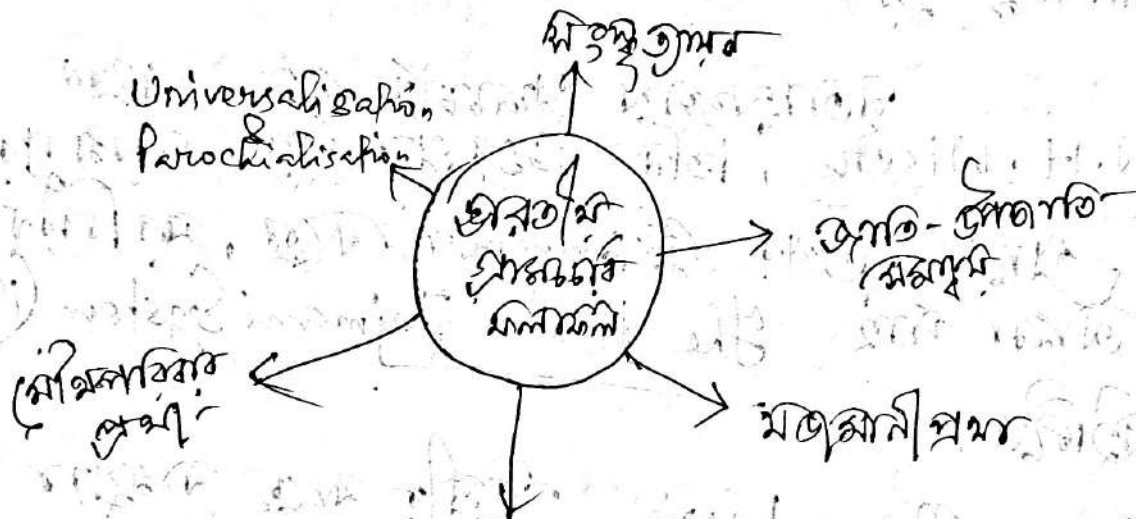 সংস্কৃতায়ন
Universalisation
&
Parochialisation
ভারতীয়
গ্রামচর্চার
ফলাফল
জাতি-উপজাতি
সমন্বয়
যৌথপরিবার
প্রথা
যজমানী প্রথা